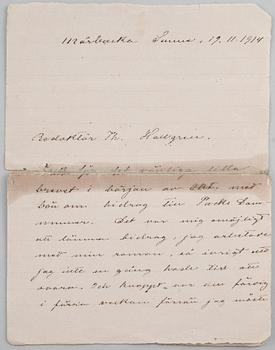 Mårbacka Sunne, 19.11.1914
Redaktör Th. Hallgren.
för det vänliga
brevet i början av Okt. med
bön om bidrag till Pucks
nummer. Det var mig omöjligt
att lämna bidrag, jag arbetade
med min roman, så ivrigt att
jag inte en gång hade tid att
svara. Och knappt var den färdig
i förra veckan förrän jag måste